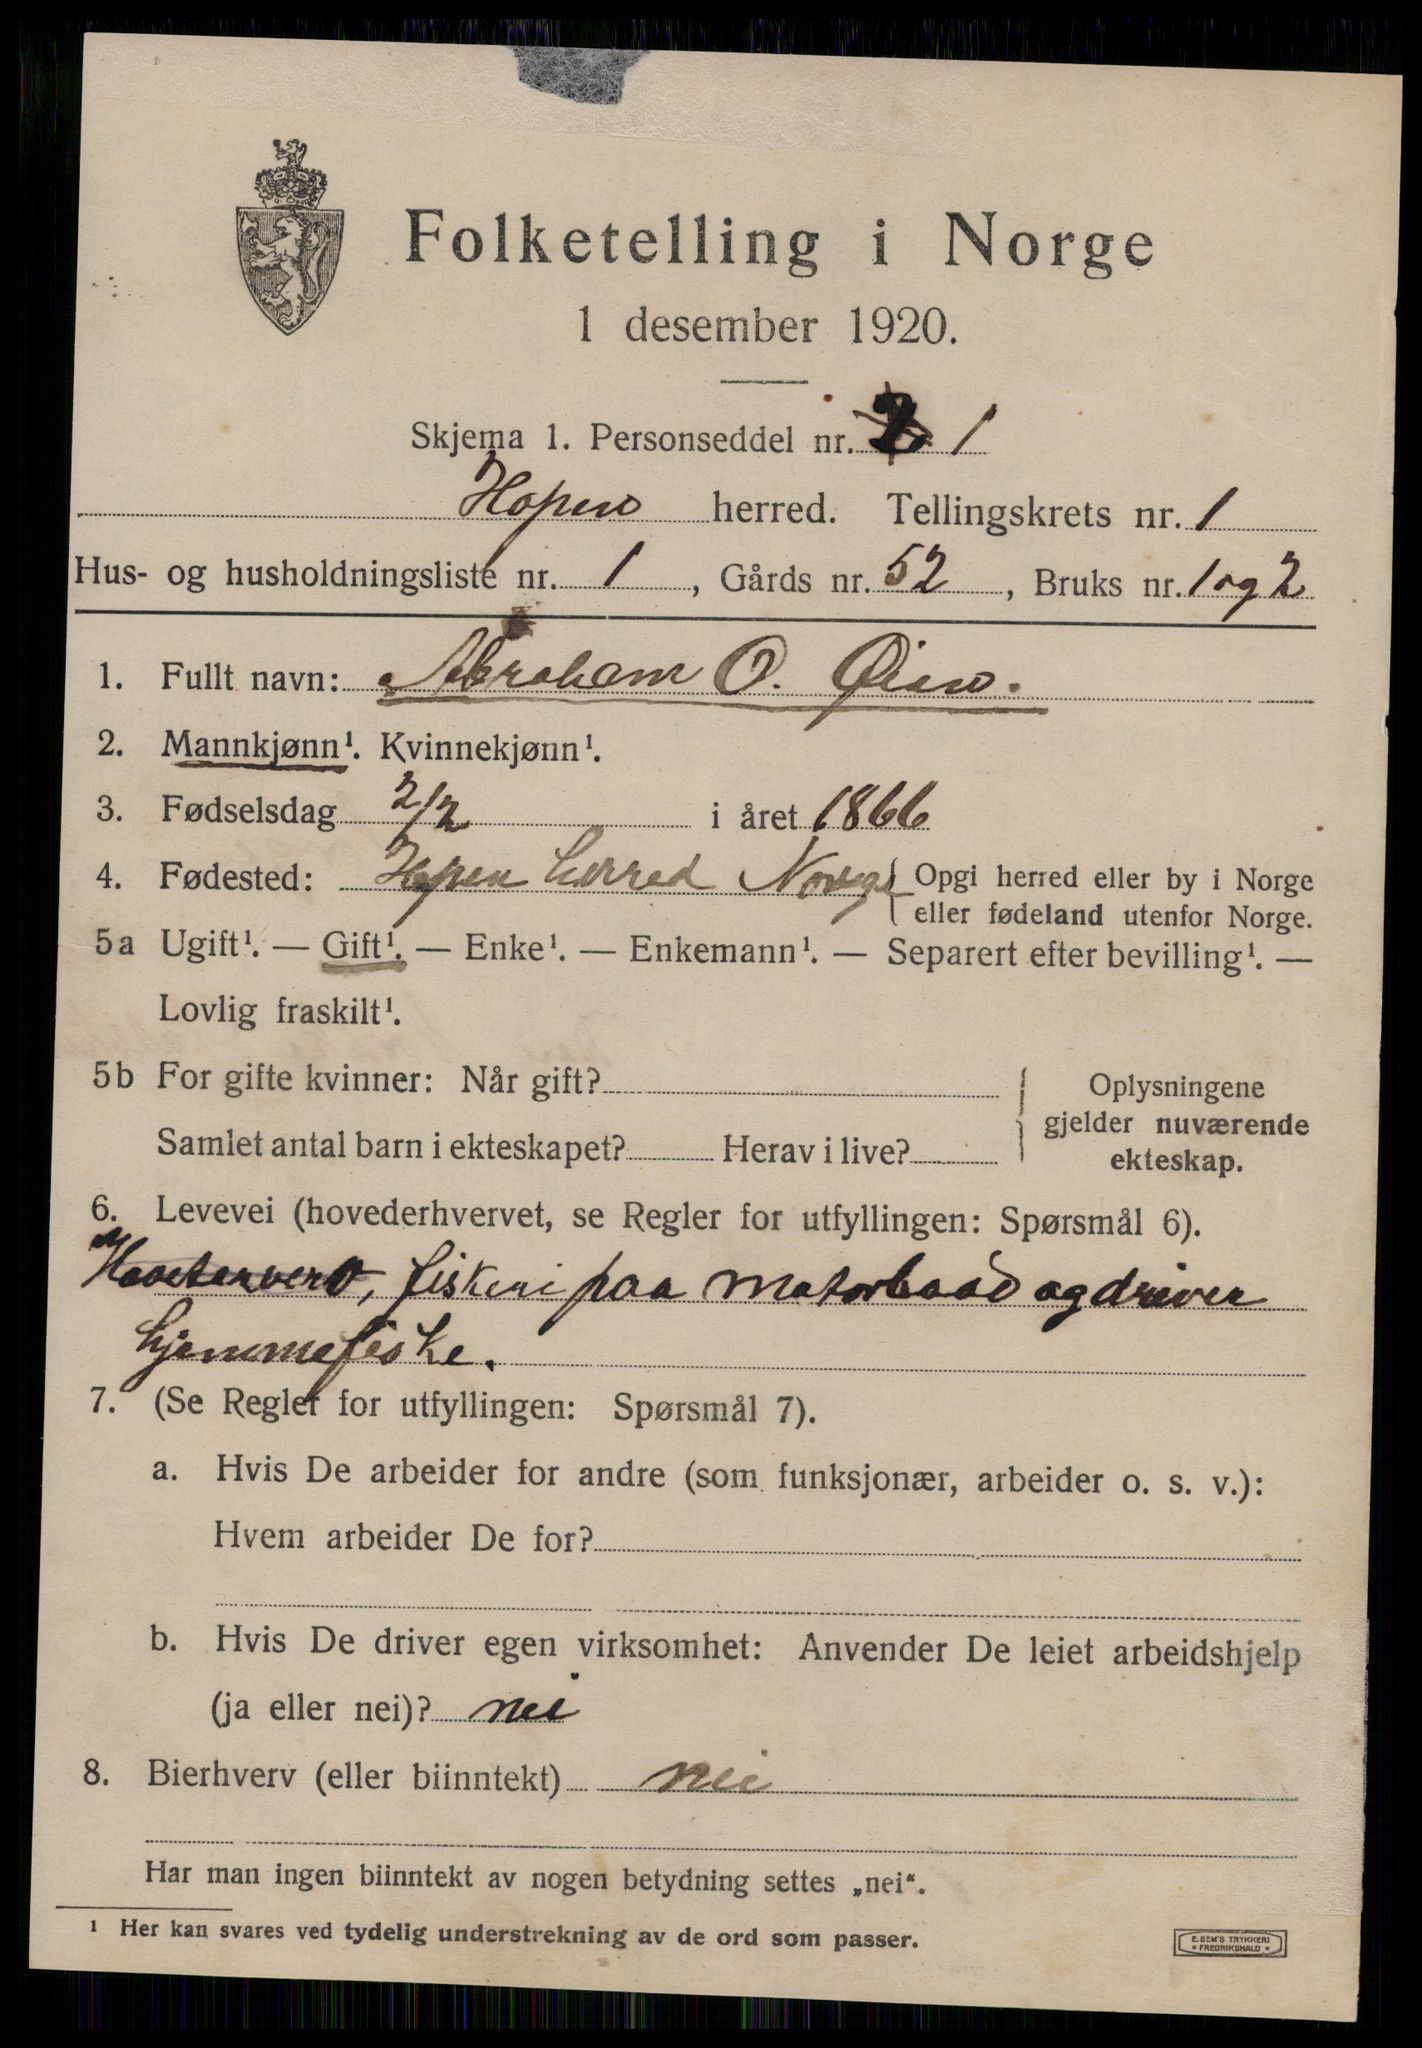 Folketelling i Norge
1 desember 1920.
Skjema 1. Personseddel nr. 1
Hopen herred. Tellingskrets nr. 1
Hus- og husholdningsliste nr. 1, Gårds nr. 52, Bruks nr. 1 og 2
1. Fullt navn: Abraham O. Øien.
2. Mannkjønn¹. Kvinnekjønn¹.
3. Fødselsdag 2/2 i året 1866
4. Fødested: Hopen herred Norge Opgi herred eller by i Norge
eller fødeland utenfor Norge.
5a Ugift¹. — Gift¹. — Enke¹. — Enkemann¹. — Separert efter bevilling¹. —
Lovlig fraskilt¹.
5b For gifte kvinner: Når gift? Oplysningene
gjelder nuværende
Samlet antal barn i ekteskapet? Herav i live? ekteskap.
6. Levevei (hovederhvervet, se Regler for utfyllingen: Spørsmål 6).
fiskeri paa motorbaad og driver
hjemmefiske.
7. (Se Regler for utfyllingen: Spørsmål 7).
a. Hvis De arbeider for andre (som funksjonær, arbeider o. s. v.):
Hvem arbeider De for?
b. Hvis De driver egen virksomhet: Anvender De leiet arbeidshjelp
(ja eller nei)? nei
8. Bierhverv (eller biinntekt) nei
Har man ingen biinntekt av nogen betydning settes „nei“.
¹ Her kan svares ved tydelig understrekning av de ord som passer.
E. SEM'S TRYKKERI
• FREDRIKSHALD •